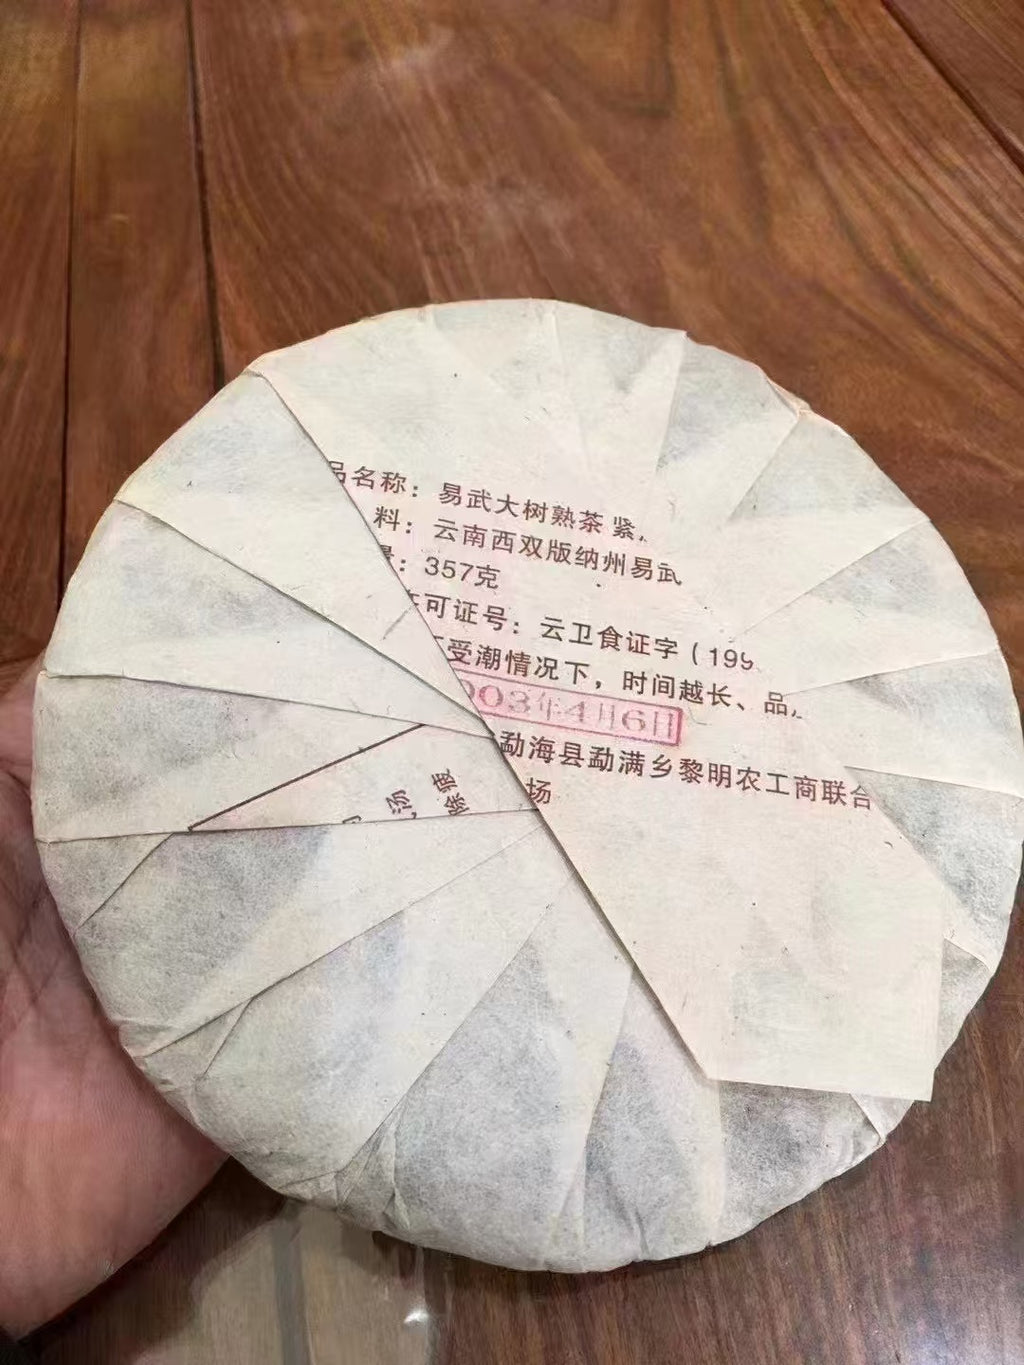 品名称：易武大树熟茶 紧
料：云南西双版纳州易武
量：357克
许可证号：云卫食证字（199
受潮情况下，时间越长、品
003年4月6日
勐海县勐满乡黎明农工商联合
场
汤
除疲